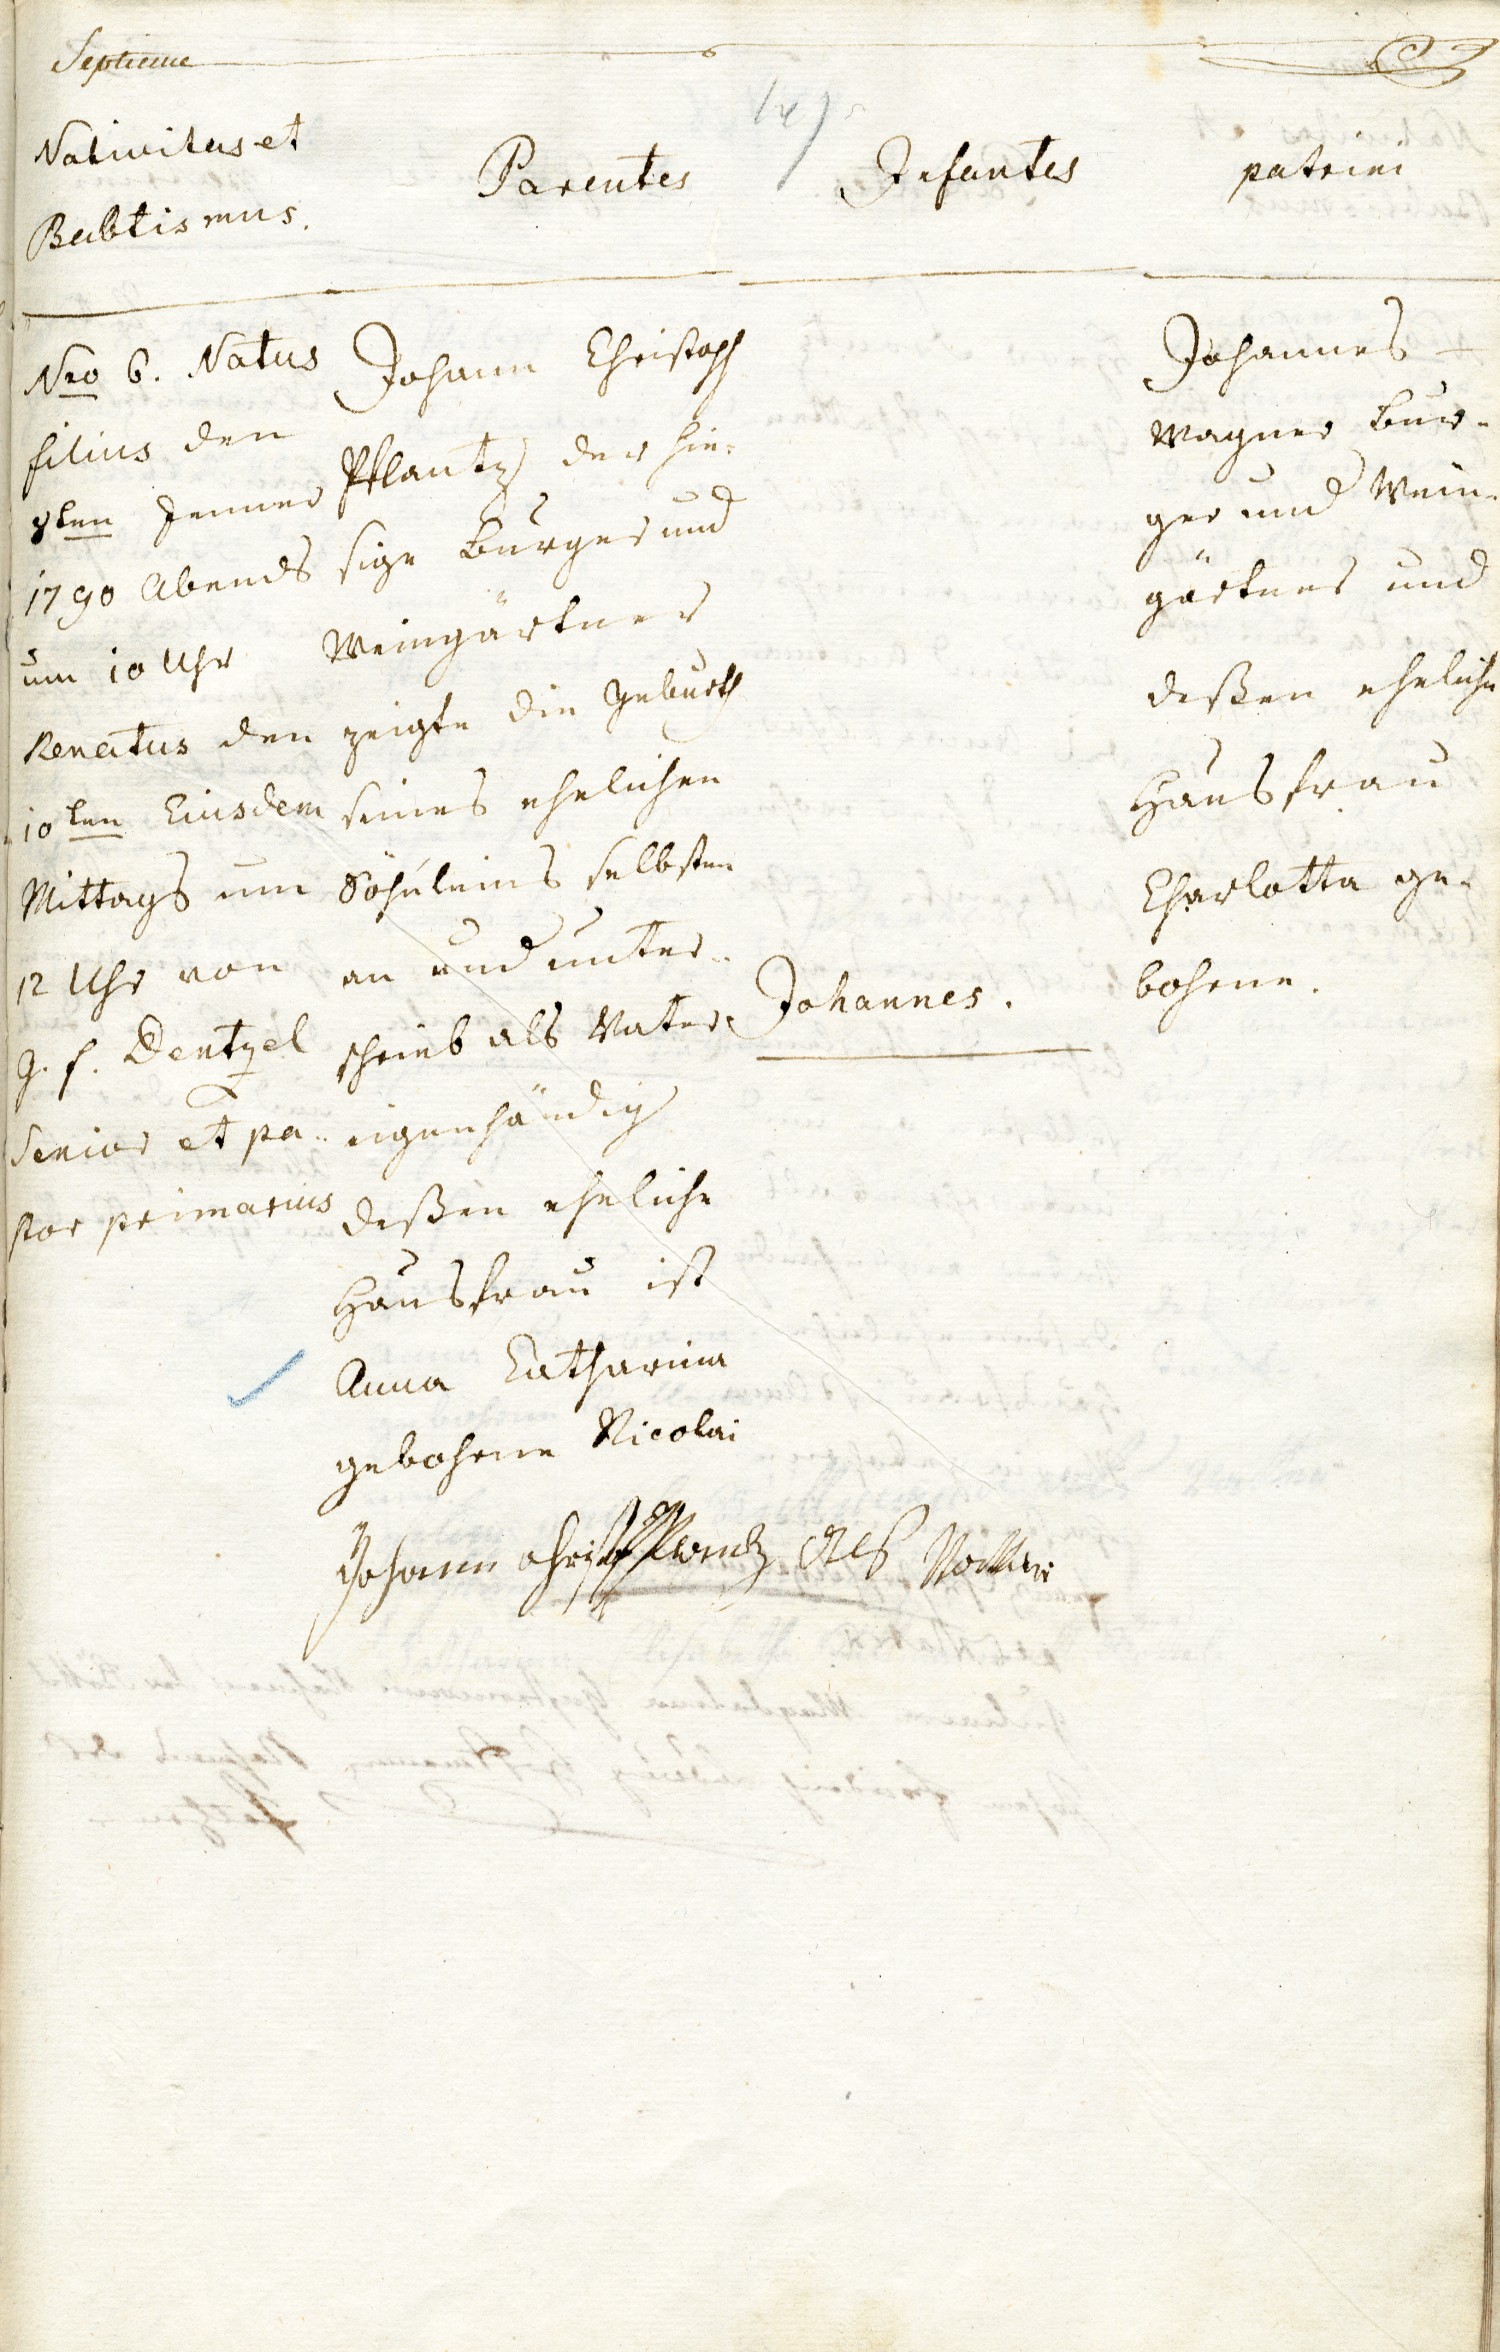 Septieme
Nativitas et
Babtismus.
Parentes
Infantes
patrini
Nro 6. Natus
filius den
8ten Jenner
1790 Abends
um 10 Uhr
Renatus den
10ten Eiusdem
Mittags um
12 Uhr von
J. f. Dentzel
Senior et pa-
stor primarius
Johann Christoph
Pflantz der hie-
sige Burger und
Weingärtner
zeigte die Geburth
seines ehelichen
Söhnleins selbsten
an und unter-
schrieb als Vater
eigenhändig
deßen eheliche
Hausfrau ist
Anna Catharina
gebohrne Nicolai
Johannes.
Johannes
Wagner Bur-
ger und Wein-
gärtner und
deßen eheliche
Hausfrau
Charlotta ge-
bohrne.
Johann Christoff Pflantz als Vatter